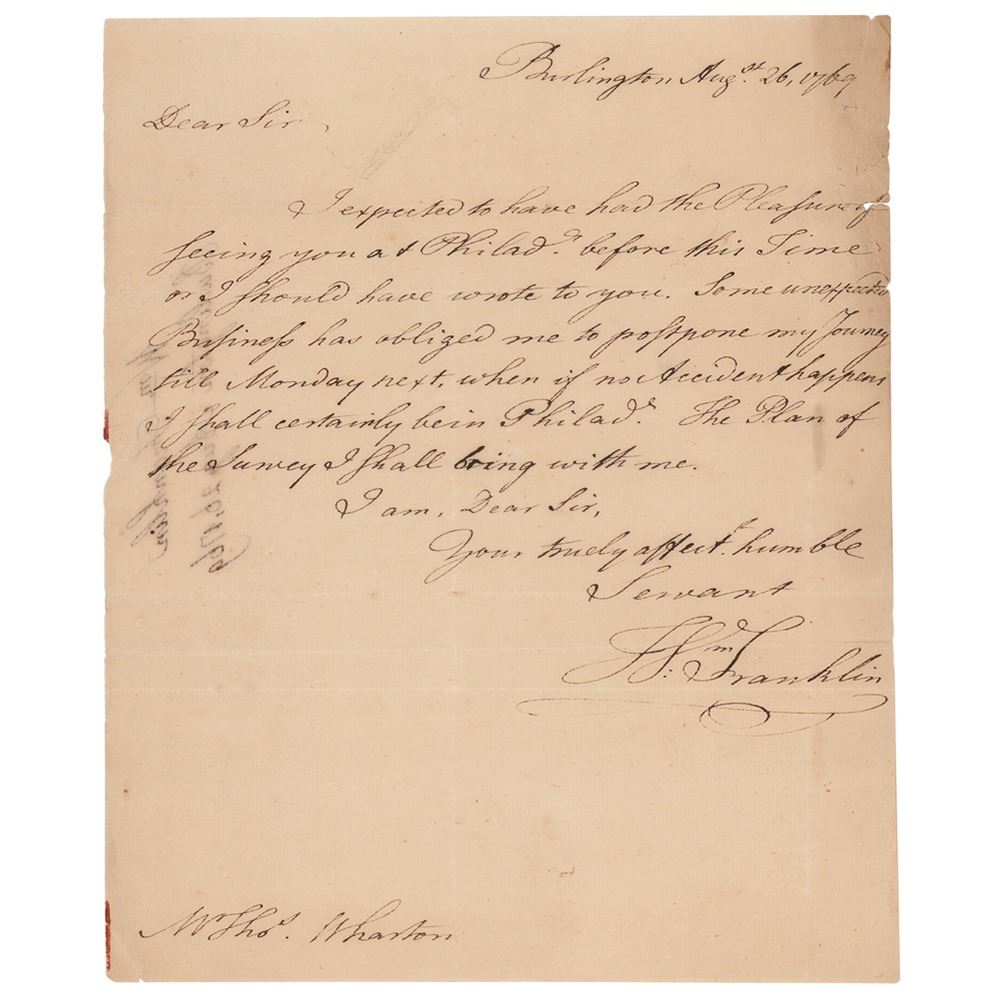 Burlington Augst. 26, 1769
Dear Sir,
I expected to have had the Pleasure of
seeing you at Philada. before this Time
or I should have wrote to you. Some unexpected
Business has obliged me to postpone my Journey
till Monday next, when if no Accident happens
I shall certainly be in Philada. The Plan of
the Survey I shall bring with me.
I am, Dear Sir,
Your truely affect. humble
Servant
Wm: Franklin
Mr. Thos. Wharton